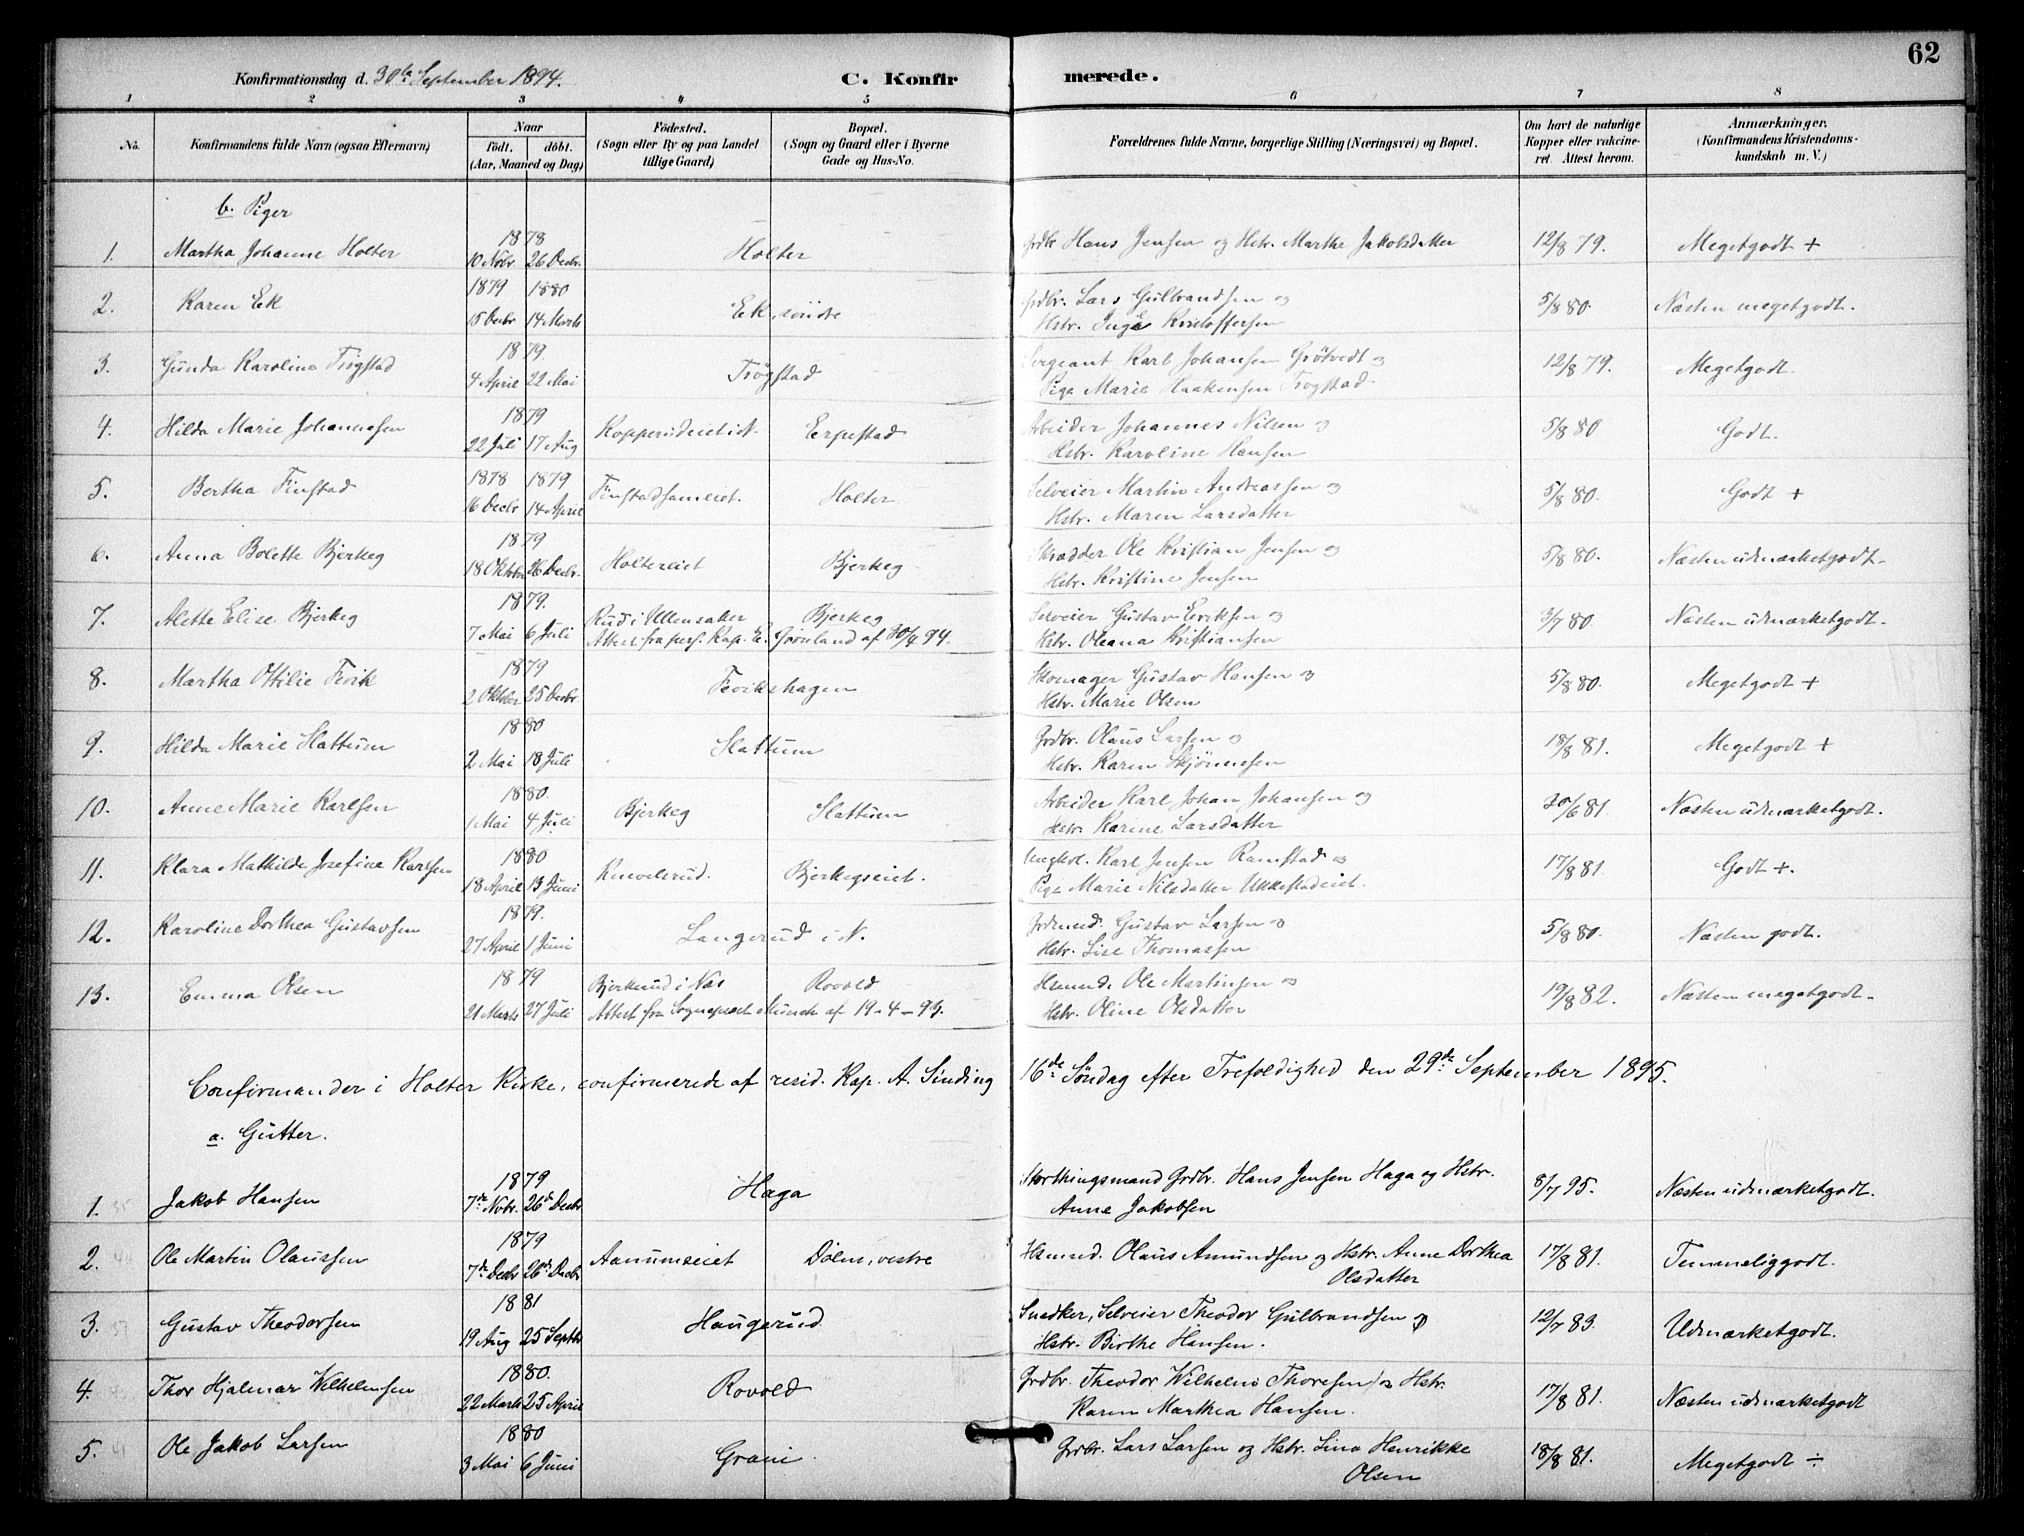 62
Konfirmationsdag d. 30te September 1894.
C. Konfirmerede.
1 2 3 4 5 6 7 8
No.
Konfirmandens fulde Navn (ogsaa Efternavn)
Naar
født. døbt.
(Aar, Maaned og Dag)
Fødested.
(Sogn eller By og paa Landet
tillige Gaard)
Bopæl.
(Sogn og Gaard eller i Byerne
Gade og Hus-No.
Forældrenes fulde Navne, borgerlige Stilling (Næringsvei) og Bopæl.
Om havt de naturlige
Kopper eller vakcine-
ret. Attest herom.
Anmærkninger.
(Konfirmandens Kristendoms-
kundskab m. V.)
b. Piger
1. Martha Johanne Holter 1878 10 Nobr. 26 Decbr. Holter Grdbr Hans Jensen og Hstr. Marthe Jakobsdatter 12/8 79. Megetgodt +
2. Karen Ek 1879 1880 15 Decbr 14 Marts Ek, søndre Grdbr. Lars Gulbrandsen og
Hstr. Inge Kristoffersen 5/8 80. Næsten megetgodt.
3. Gunda Karoline Trøgstad 1879. 4 April 22 Mai Trøgstad Sergeant Karl Johansen Grøtvedt og
Pige Marie Haakensen Trøgstad. 12/8 79. Megetgodt.
4. Hilda Marie Johannesen 1879 22 Juli 17 Aug Kopperudeiet Erpestad Arbeider Johannes Nilsen og
Hstr. Karoline Hansen 5/8 80 Godt.
5. Bertha Finstad 1878 1879 16 Decbr 14 April Finstadsameiet. Holter Selveier Martin Andreassen og
Hstr. Maren Larsdatter 5/8 80. Godt +
6. Anna Bolette Bjerkeg 1879 18 Oktobr 26 Decbr. Holtereiet Bjerkeg Skrædder Ole Kristian Jensen og
Hstr. Kristine Jensen 5/8 80. Næsten udmærketgodt.
7. Alette Elise Bjerkeg 1879. 7 Mai 6 Juli Rud i Ullensaker Bjerkeg
Attest fra pers. Kap. E. Grønland af 30/4 94. Selveier Gustav Eriksen og
Hstr. Oleana Kristiansen 3/7 80. Næsten udmærketgodt.
8. Martha Ottilie Tevik 1879 2 Oktobr 25 Decbr Tevikshagen Skomager Gustav Hansen og
Hstr. Marie Olsen 5/8 80. Megetgodt +
9. Hilda Marie Slattum 1880 2 Mai 18 Juli Slattum Grdbr. Olaus Larsen og
Hstr. Karen Skjønnesen 18/8 81. Megetgodt +
10. Anne Marie Karlsen 1880. 1 Mai 4 Juli Bjerkeg Slattum Arbeider Karl Johan Johansen og
Hstr. Karine Larsdatter 30/6 81 Næsten udmærketgodt.
11. Klara Mathilde Josefine Karlsen 1880 18 April 13 Juni Bjerkegseiet. Ungkal. Karl Jensen Ramstad og
Pige Marie Nilsdatter Ukkestadeiet. 17/8 81. Godt +.
12. Karoline Dorthea Gustavsen 1879. 27 April 1 Juni Langerud i N. Grdmnd. Gustav Larsen og
Hstr. Lise Thomassen 5/8 80. Næsten godt.
13. Emma Olsen 1879 21 Marts 27 Juli Bjerkerud i Næs Rovold
Attest fra Sognepræst Munch af 19-4-93. Hsmnd. Ole Martinsen og
Hstr. Oline Olsdatter 19/8 82. Næsten megetgodt.
Confirmander i Holter Kirke, confirmerede af resid. Kap. A. Sinding 16de Søndag efter Trefoldighed den 29de September 1895.
a. Gutter.
1. Jakob Hansen 1879 7de Nobr. 26de Decbr Haga Storthingsmand Grdbr. Hans Jensen Haga og Hstr.
Anne Jakobsen 8/7 95. Næsten udmærketgodt.
2. Ole Martin Olaussen 1879 7de Decbr 26de Decbr Aanumseiet Dølen, vestre Hsmnd. Olaus Amundsen og Hstr. Anne Dorthea
Olsdatter 17/8 81. Temmeliggodt.
3. Gustav Theodorsen 1881 19 Aug 25 Septbr Haugerud Snedker, Selveier Theodor Gulbrandsen og
Hstr. Birthe Hansen. 12/7 83. Udmærketgodt.
4. Thor Hjalmar Wilhelmsen 1880. 22 Marts 25 April Rovold Grdbr. Theodor Wilhelm Thoresen og Hstr.
Karen Marthea Hansen. 17/8 81. Næsten udmærketgodt
5. Ole Jakob Larsen 1880 3 Mai 6 Juni Grani Grdbr. Lars Larsen og Hstr. Lina Henrikke
Olsen 18/8 81. Megetgodt ÷